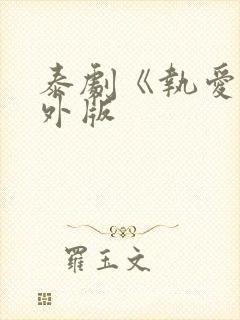 泰劇《執愛
外版
羅玉文